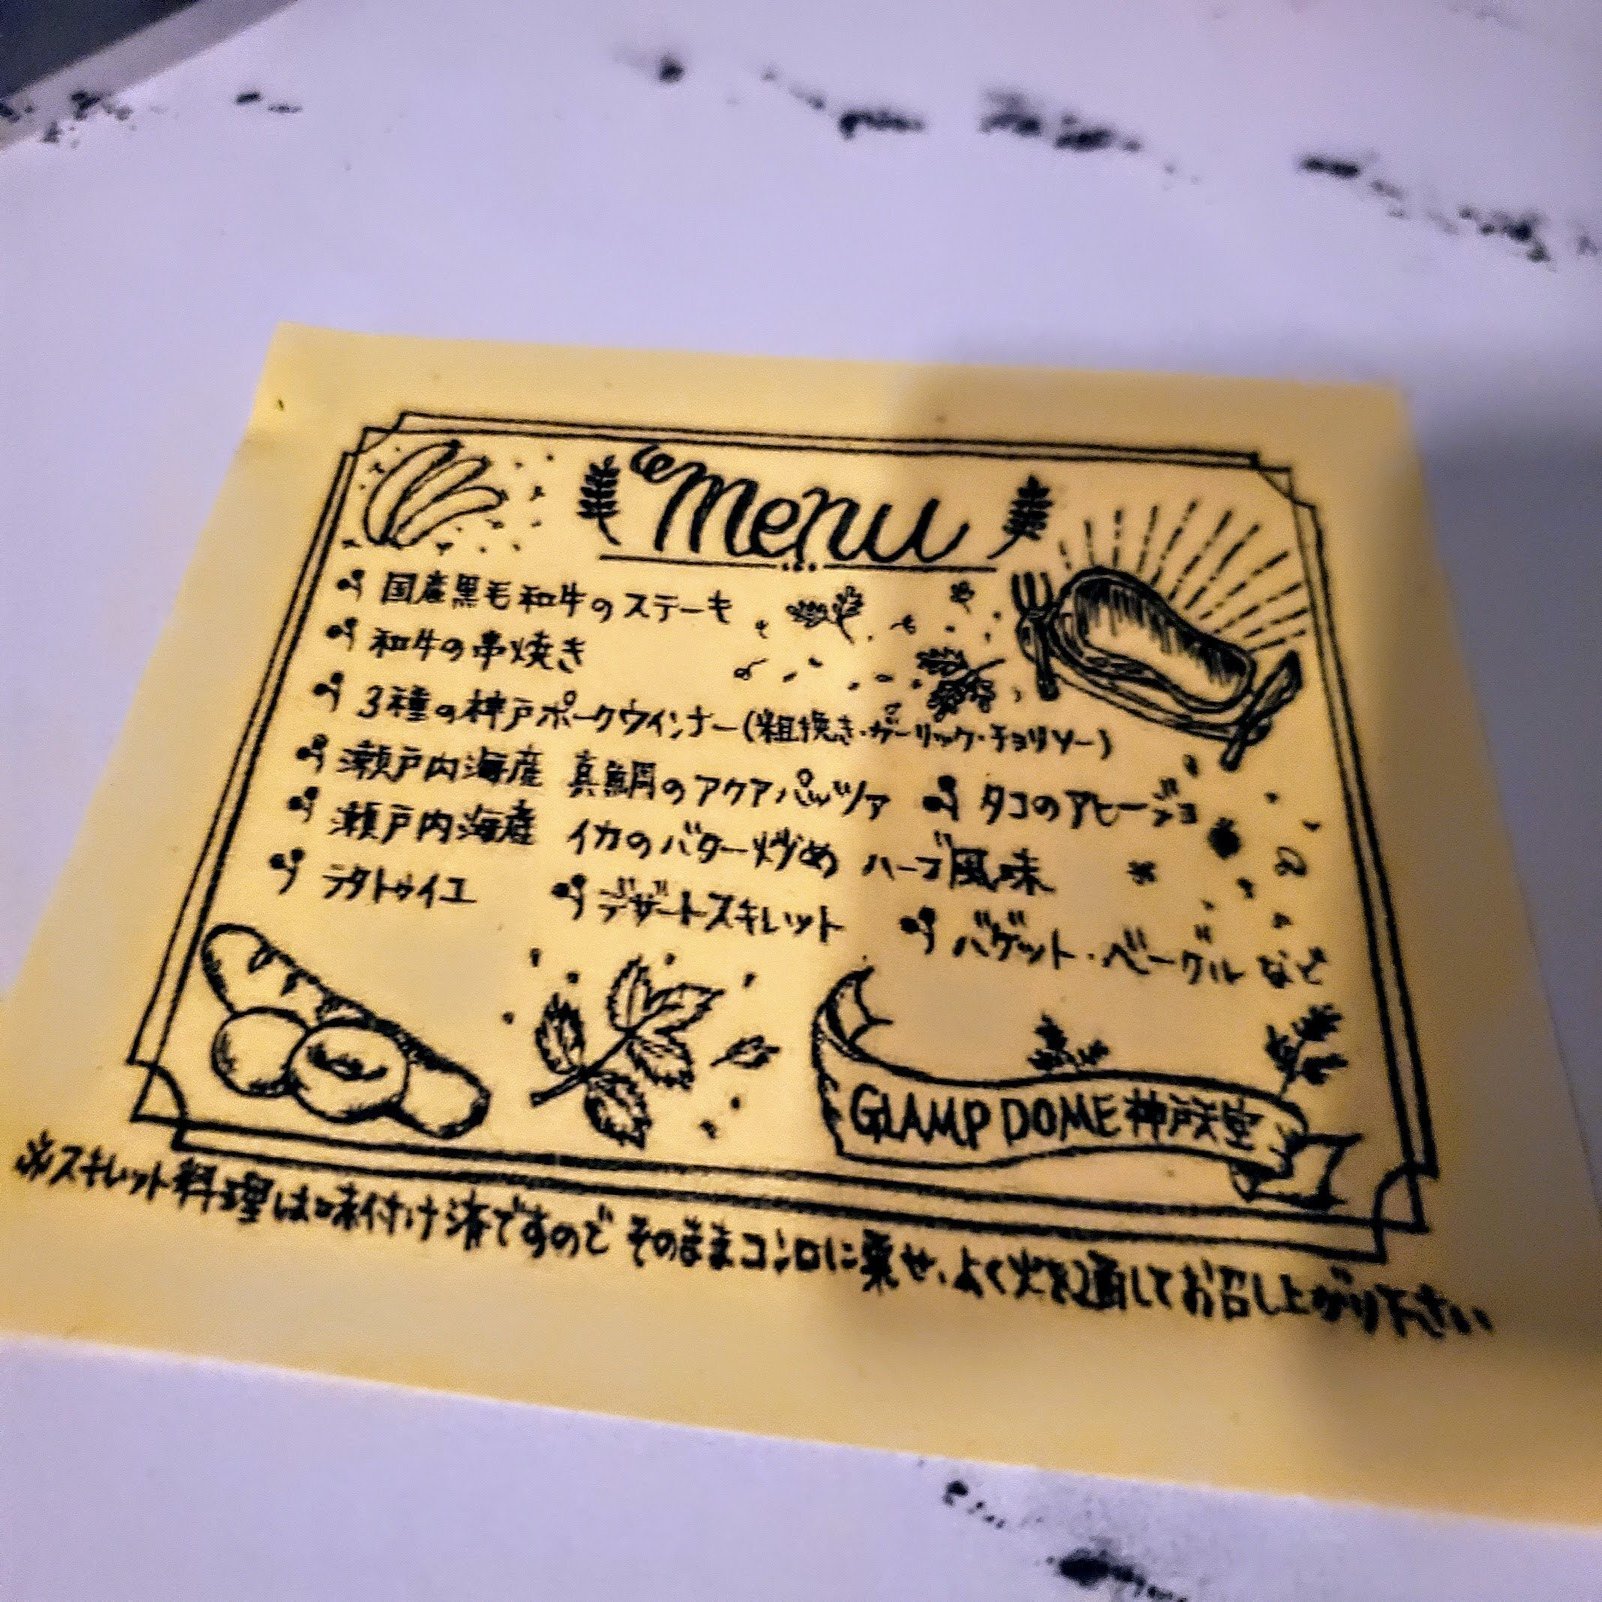 Menu
国産黒毛和牛のステーキ
和牛の串焼き
3種の神戸ポークウインナー(粗挽き・ガーリック・チョリソー)
瀬戸内海産 真鯛のアクアパッツァ タコのアヒージョ
瀬戸内海産 イカのバター炒め ハーブ風味
ラタトゥイユ デザートスキレット バゲット・ベーグルなど
GLAMP DOME 神戸天空
※スキレット料理は味付け済ですので そのままコンロに乗せ、よく火を通してお召し上がり下さい